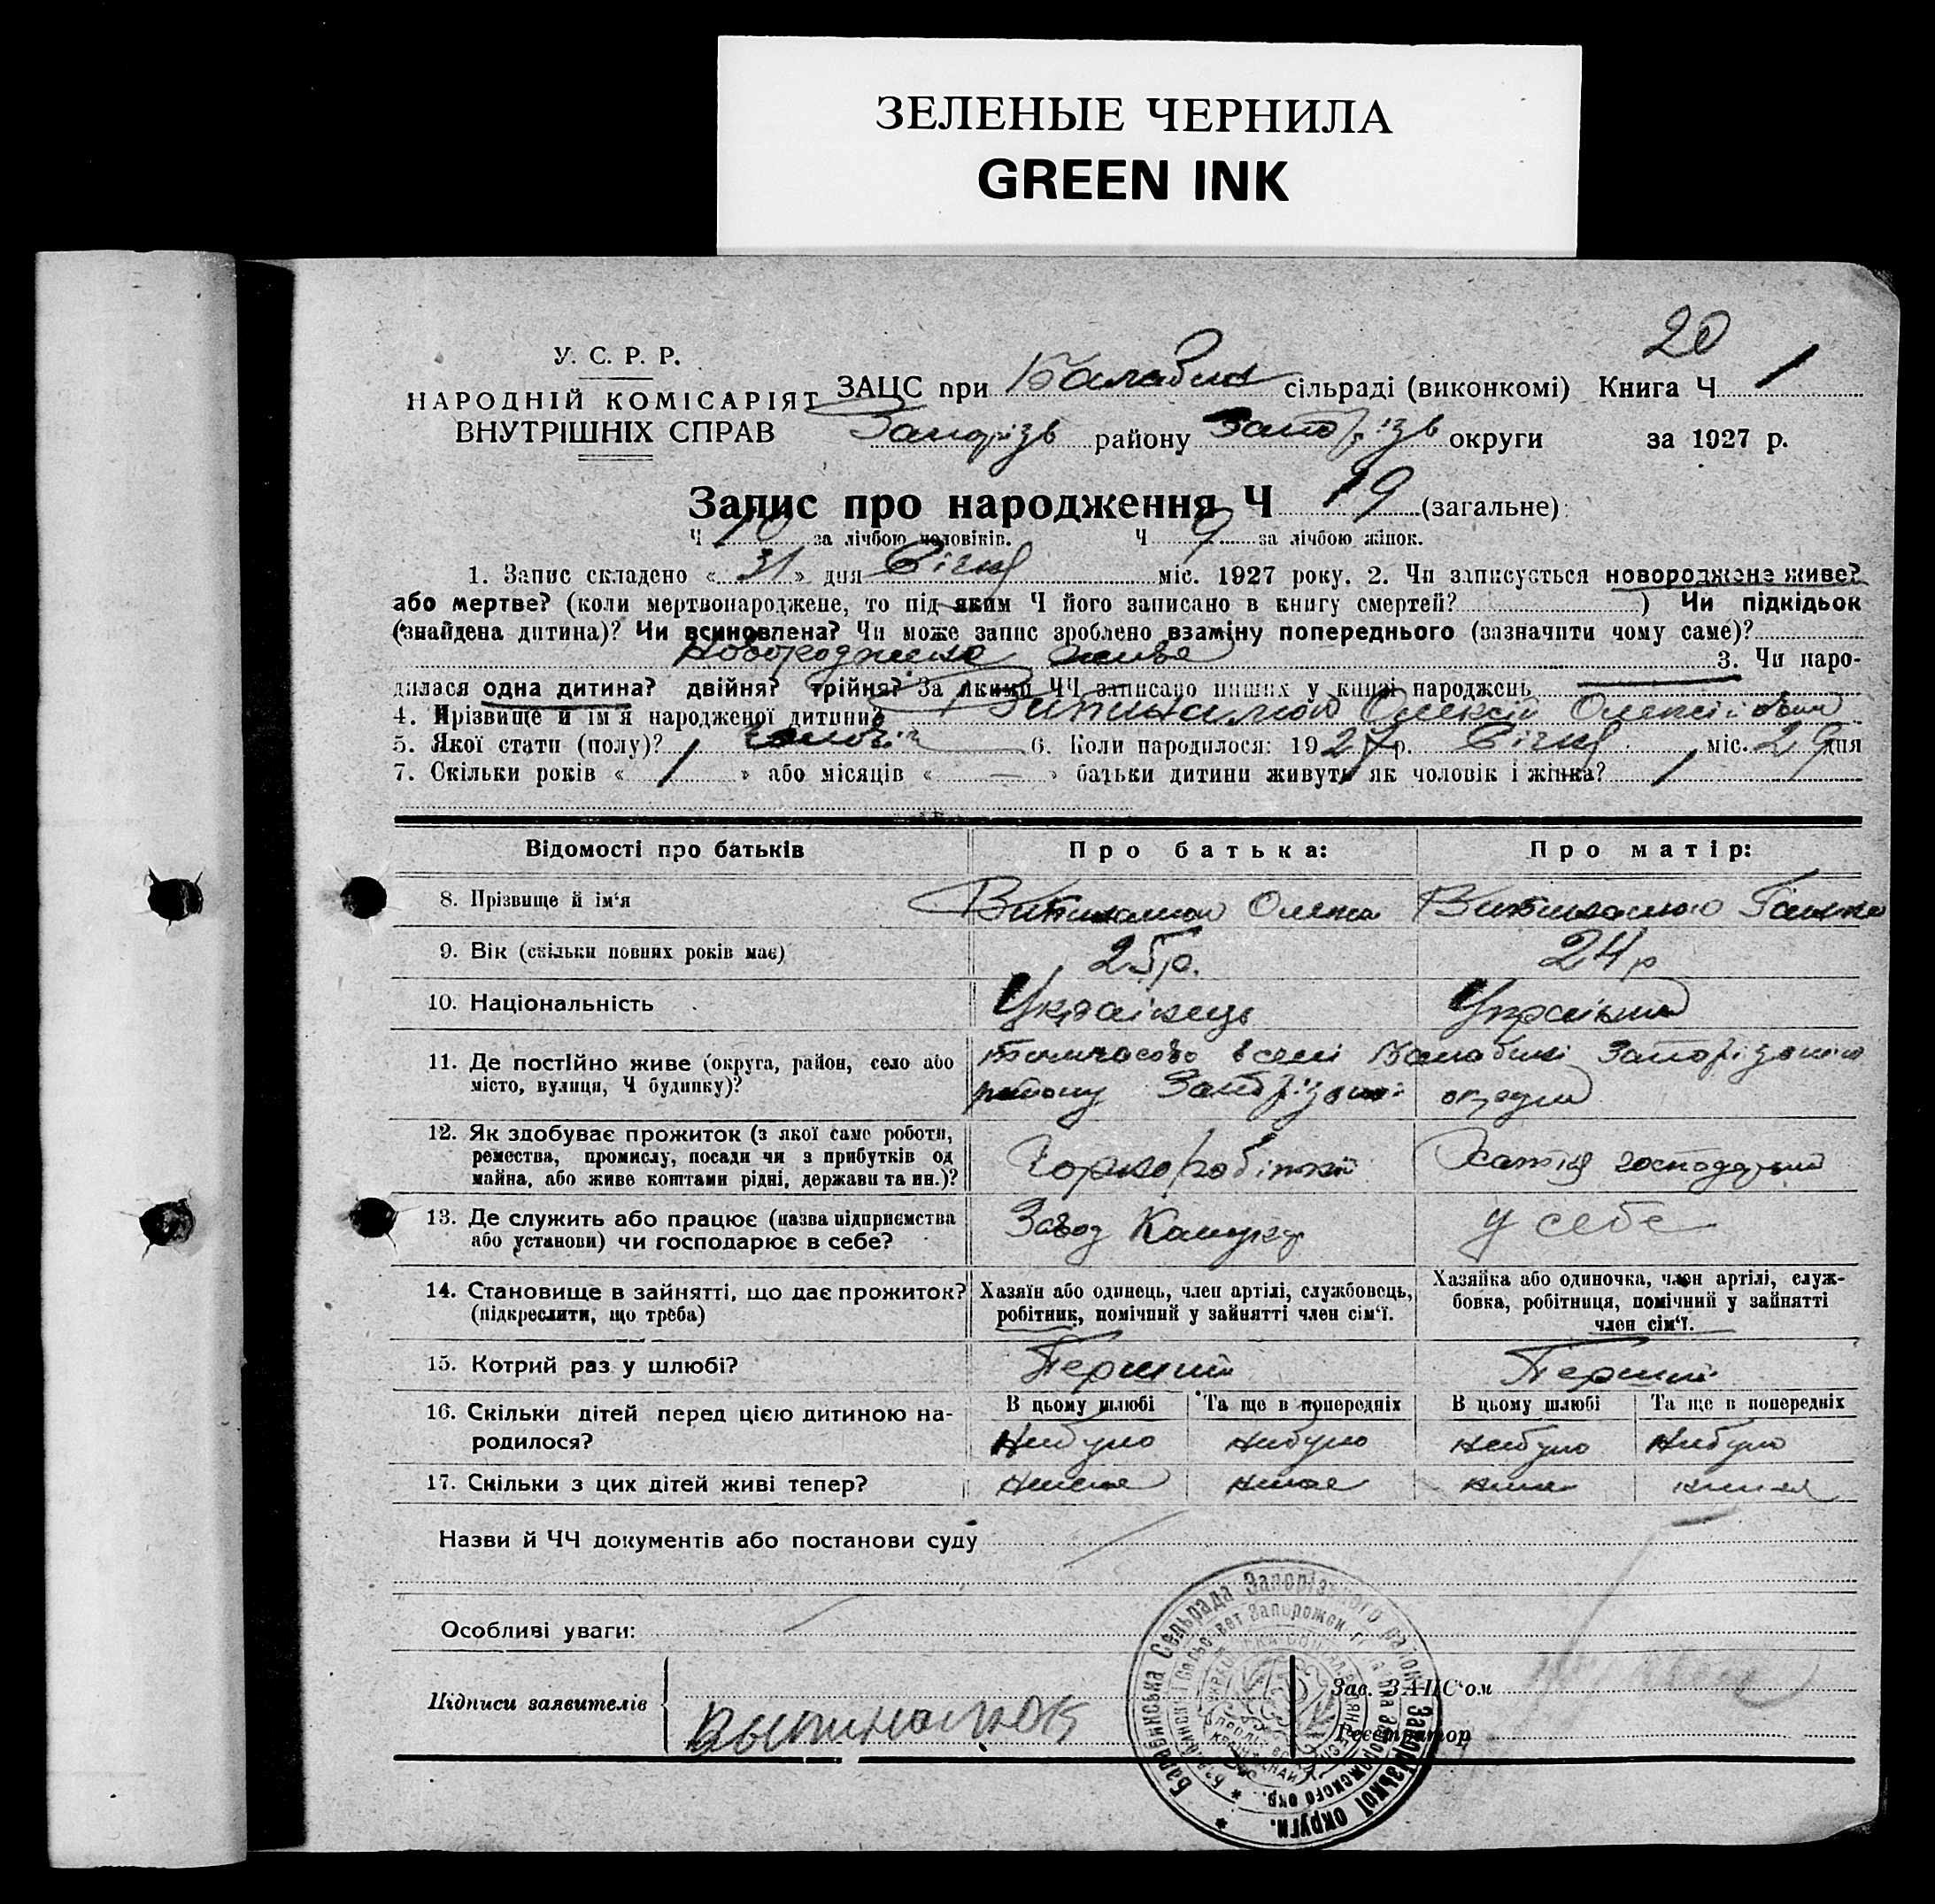 ЗЕЛЕНЫЕ ЧЕРНИЛА
GREEN INK
20
У. С. Р. Р.
НАРОДНІЙ КОМІСАРІЯТ
ВНУТРІШНІХ СПРАВ
ЗАЦС при Балабин сільраді (виконкомі) Книга Ч 1
Запоріз району Запоріз округи за 1927 р.
Запис про народження Ч 19 (загальне):
Ч 10 за лічбою чоловіків. Ч 9 за лічбою жінок.
1. Запис складено « 31 » дня Січня міс. 1927 року. 2. Чи записується новороджене живе?
або мертве? (коли мертвонароджене, то під яким Ч його записано в книгу смертей? ) Чи підкідьок
(знайдена дитина)? Чи всиновлена? Чи може запис зроблено взаміну попереднього (зазначити чому саме)?
Новороджене живе 3. Чи наро-
дилася одна дитина? двійня? трійня? За якими ЧЧ записано инших у книзі народжень
4. Прізвище й ім'я народженої дитини? Олексій Олексійович
5. Якої стати (полу)? 6. Коли народилося: 1927 р. Січня міс. 29 дня
7. Скільки років « 1 » або місяців « — » батьки дитини живуть як чоловік і жінка?
Відомості про батьків
Про батька:
Про матір:
8. Прізвище й ім'я
9. Вік (скільки повних років має) 25 р. 24 р
10. Національність Українець Українка
11. Де постійно живе (округа, район, село або
місто, вулиця, Ч будинку)?
тимчасово в селі Балабині Запорізького
району Запорізької округи
12. Як здобуває прожиток (з якої саме роботи,
ремества, промислу, посади чи з прибутків од
майна, або живе коштами рідні, держави та ин.)?
Чорноробітник Хатня господарка
13. Де служить або працює (назва підприємства
або установи) чи господарює в себе?
Завод Комунар у себе
14. Становище в зайнятті, що дає прожиток?
(підкреслити, що треба)
Хазяїн або одинець, член артілі, службовець,
робітник, помічний у зайнятті член сім'ї.
Хазяйка або одиночка, член артілі, служ-
бовка, робітниця, помічний у зайнятті
член сім'ї.
15. Котрий раз у шлюбі? Перший Перший
16. Скільки дітей перед цією дитиною на-
родилося?
В цьому шлюбі Та ще в попередніх В цьому шлюбі Та ще в попередніх
Небуло небуло небуло небуло
17. Скільки з цих дітей живі тепер?
Назви й ЧЧ документів або постанови суду
Особливі уваги:
Підписи заявителів
Зав. ЗАЦС'ом
Реєстратор
Балабинська Сельрада Запорізького району Запорізької округи.